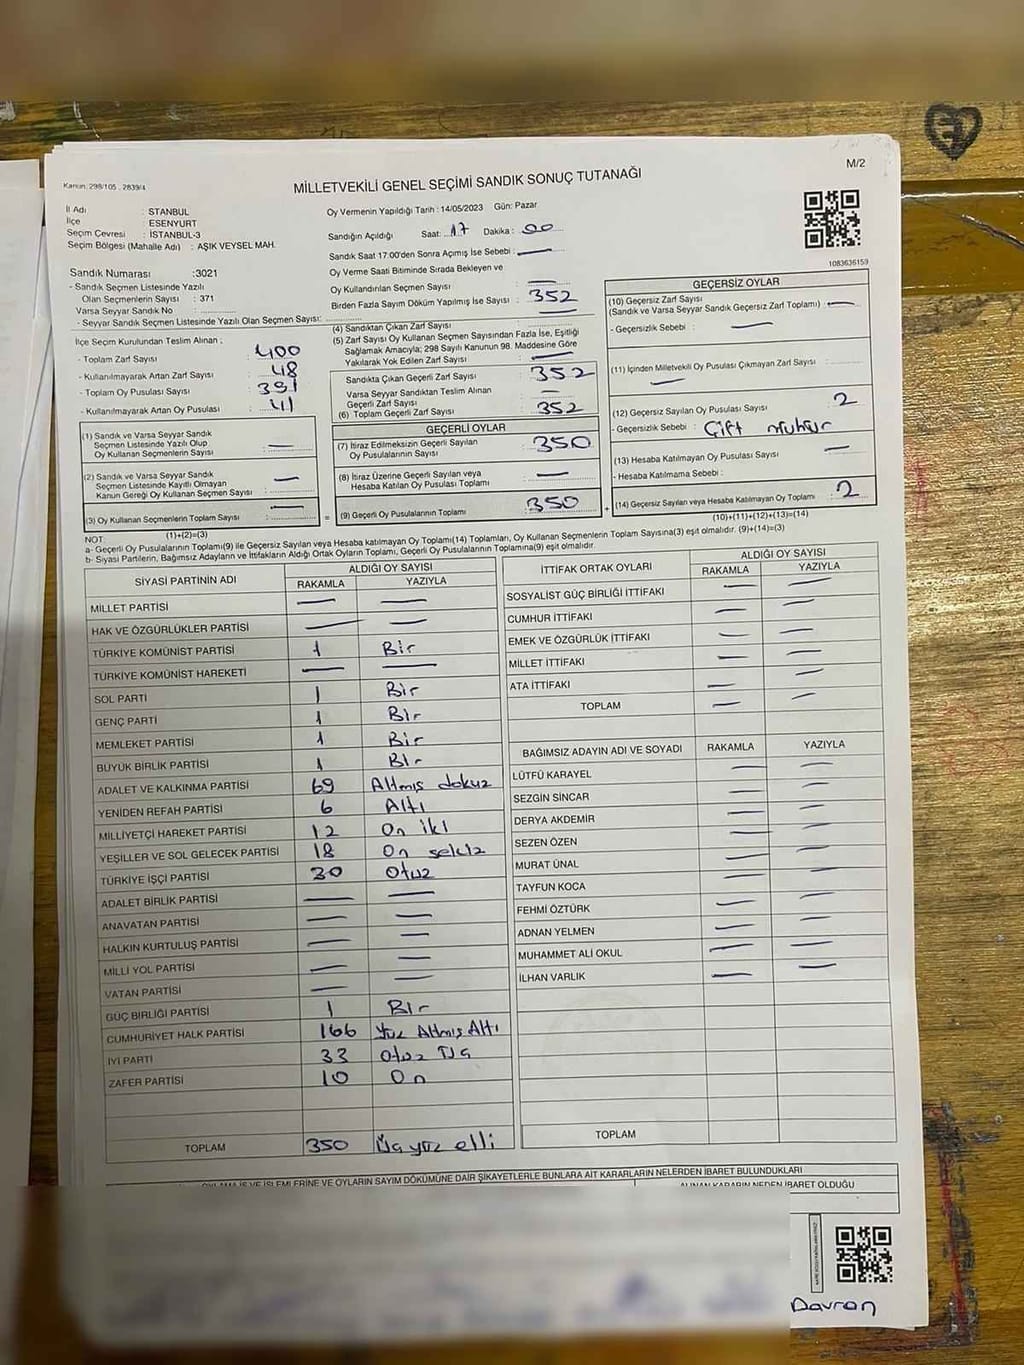 M/2
Kanun: 298/105 . 2839/4
MİLLETVEKİLİ GENEL SEÇİMİ SANDIK SONUÇ TUTANAĞI
İl Adı : STANBUL
İlçe : ESENYURT
Seçim Çevresi : İSTANBUL-3
Seçim Bölgesi (Mahalle Adı) : AŞIK VEYSEL MAH.
Sandık Numarası :3021
- Sandık Seçmen Listesinde Yazılı
Olan Seçmenlerin Sayısı : 371
Varsa Seyyar Sandık No :
- Seyyar Sandık Seçmen Listesinde Yazılı Olan Seçmen Sayısı:
Oy Vermenin Yapıldığı Tarih : 14/05/2023 Gün: Pazar
Sandığın Açıldığı Saat: 17 Dakika : 00
Sandık Saat 17:00'den Sonra Açımış İse Sebebi : —
Oy Verme Saati Bitiminde Sırada Bekleyen ve
Oy Kullandırılan Seçmen Sayısı : —
Birden Fazla Sayım Döküm Yapılmış İse Sayısı : 352
1083636159
İlçe Seçim Kurulundan Teslim Alınan ;
- Toplam Zarf Sayısı : 400
- Kullanılmayarak Artan Zarf Sayısı : 48
- Toplam Oy Pusulası Sayısı : 391
- Kullanılmayarak Artan Oy Pusulası : 41
(1) Sandık ve Varsa Seyyar Sandık
Seçmen Listesinde Yazılı Olup
Oy Kullanan Seçmenlerin Sayısı : —
(2) Sandık ve Varsa Seyyar Sandık
Seçmen Listesinde Kayıtlı Olmayan
Kanun Gereği Oy Kullanan Seçmen Sayısı : —
(3) Oy Kullanan Seçmenlerin Toplam Sayısı : —
(1)+(2)=(3)
(4) Sandıktan Çıkan Zarf Sayısı : —
(5) Zarf Sayısı Oy Kullanan Seçmen Sayısından Fazla İse, Eşitliği
Sağlamak Amacıyla; 298 Sayılı Kanunun 98. Maddesine Göre
Yakılarak Yok Edilen Zarf Sayısı : —
Sandıkta Çıkan Geçerli Zarf Sayısı : 352
Varsa Seyyar Sandıktan Teslim Alınan
Geçerli Zarf Sayısı : —
(6) Toplam Geçerli Zarf Sayısı : 352
GEÇERLİ OYLAR
(7) İtiraz Edilmeksizin Geçerli Sayılan
Oy Pusulalarının Sayısı : 350
(8) İtiraz Üzerine Geçerli Sayılan veya
Hesaba Katılan Oy Pusulası Toplamı : —
= (9) Geçerli Oy Pusulalarının Toplamı : 350
GEÇERSİZ OYLAR
(10) Geçersiz Zarf Sayısı
(Sandık ve Varsa Seyyar Sandık Geçersiz Zarf Toplamı) : —
- Geçersizlik Sebebi : —
(11) İçinden Milletvekili Oy Pusulası Çıkmayan Zarf Sayısı : —
(12) Geçersiz Sayılan Oy Pusulası Sayısı : 2
- Geçersizlik Sebebi : Çift mühür
(13) Hesaba Katılmayan Oy Pusulası Sayısı : —
- Hesaba Katılmama Sebebi :
+ (14) Geçersiz Sayılan veya Hesaba Katılmayan Oy Toplamı : 2
(10)+(11)+(12)+(13)=(14)
NOT:
a- Geçerli Oy Pusulalarının Toplamı(9) ile Geçersiz Sayılan veya Hesaba katılmayan Oy Toplamı(14) Toplamları, Oy Kullanan Seçmenlerin Toplam Sayısına(3) eşit olmalıdır. (9)+(14)=(3)
b- Siyasi Partilerin, Bağımsız Adayların ve İttifakların Aldığı Ortak Oyların Toplamı, Geçerli Oy Pusulalarının Toplamına(9) eşit olmalıdır.
SİYASİ PARTİNİN ADI ALDIĞI OY SAYISI
RAKAMLA YAZIYLA
MİLLET PARTİSİ — —
HAK VE ÖZGÜRLÜKLER PARTİSİ — —
TÜRKİYE KOMÜNİST PARTİSİ 1 Bir
TÜRKİYE KOMÜNİST HAREKETİ — —
SOL PARTİ 1 Bir
GENÇ PARTİ 1 Bir
MEMLEKET PARTİSİ 1 Bir
BÜYÜK BİRLİK PARTİSİ 1 Bir
ADALET VE KALKINMA PARTİSİ 69 Altmış dokuz
YENİDEN REFAH PARTİSİ 6 Altı
MİLLİYETÇİ HAREKET PARTİSİ 12 On iki
YEŞİLLER VE SOL GELECEK PARTİSİ 18 On sekiz
TÜRKİYE İŞÇİ PARTİSİ 30 Otuz
ADALET BİRLİK PARTİSİ — —
ANAVATAN PARTİSİ — —
HALKIN KURTULUŞ PARTİSİ — —
MİLLİ YOL PARTİSİ — —
VATAN PARTİSİ — —
GÜÇ BİRLİĞİ PARTİSİ 1 Bir
CUMHURİYET HALK PARTİSİ 166 Yüz Altmış Altı
İYİ PARTİ 33 Otuz Üç
ZAFER PARTİSİ 10 On
TOPLAM 350 Üç yüz elli
İTTİFAK ORTAK OYLARI ALDIĞI OY SAYISI
RAKAMLA YAZIYLA
SOSYALİST GÜÇ BİRLİĞİ İTTİFAKI — —
CUMHUR İTTİFAKI — —
EMEK VE ÖZGÜRLÜK İTTİFAKI — —
MİLLET İTTİFAKI — —
ATA İTTİFAKI — —
TOPLAM — —
BAĞIMSIZ ADAYIN ADI VE SOYADI RAKAMLA YAZIYLA
LÜTFÜ KARAYEL — —
SEZGİN SİNCAR — —
DERYA AKDEMİR — —
SEZEN ÖZEN — —
MURAT ÜNAL — —
TAYFUN KOCA — —
FEHMİ ÖZTÜRK — —
ADNAN YELMEN — —
MUHAMMET ALİ OKUL — —
İLHAN VARLIK — —
TOPLAM
OYLAMA İŞ VE İŞLEMLERİNE VE OYLARIN SAYIM DÖKÜMÜNE DAİR ŞİKAYETLERLE BUNLARA AİT KARARLARIN NELERDEN İBARET BULUNDUKLARI
ALINAN KARARIN NEDEN İBARET OLDUĞU
Davran